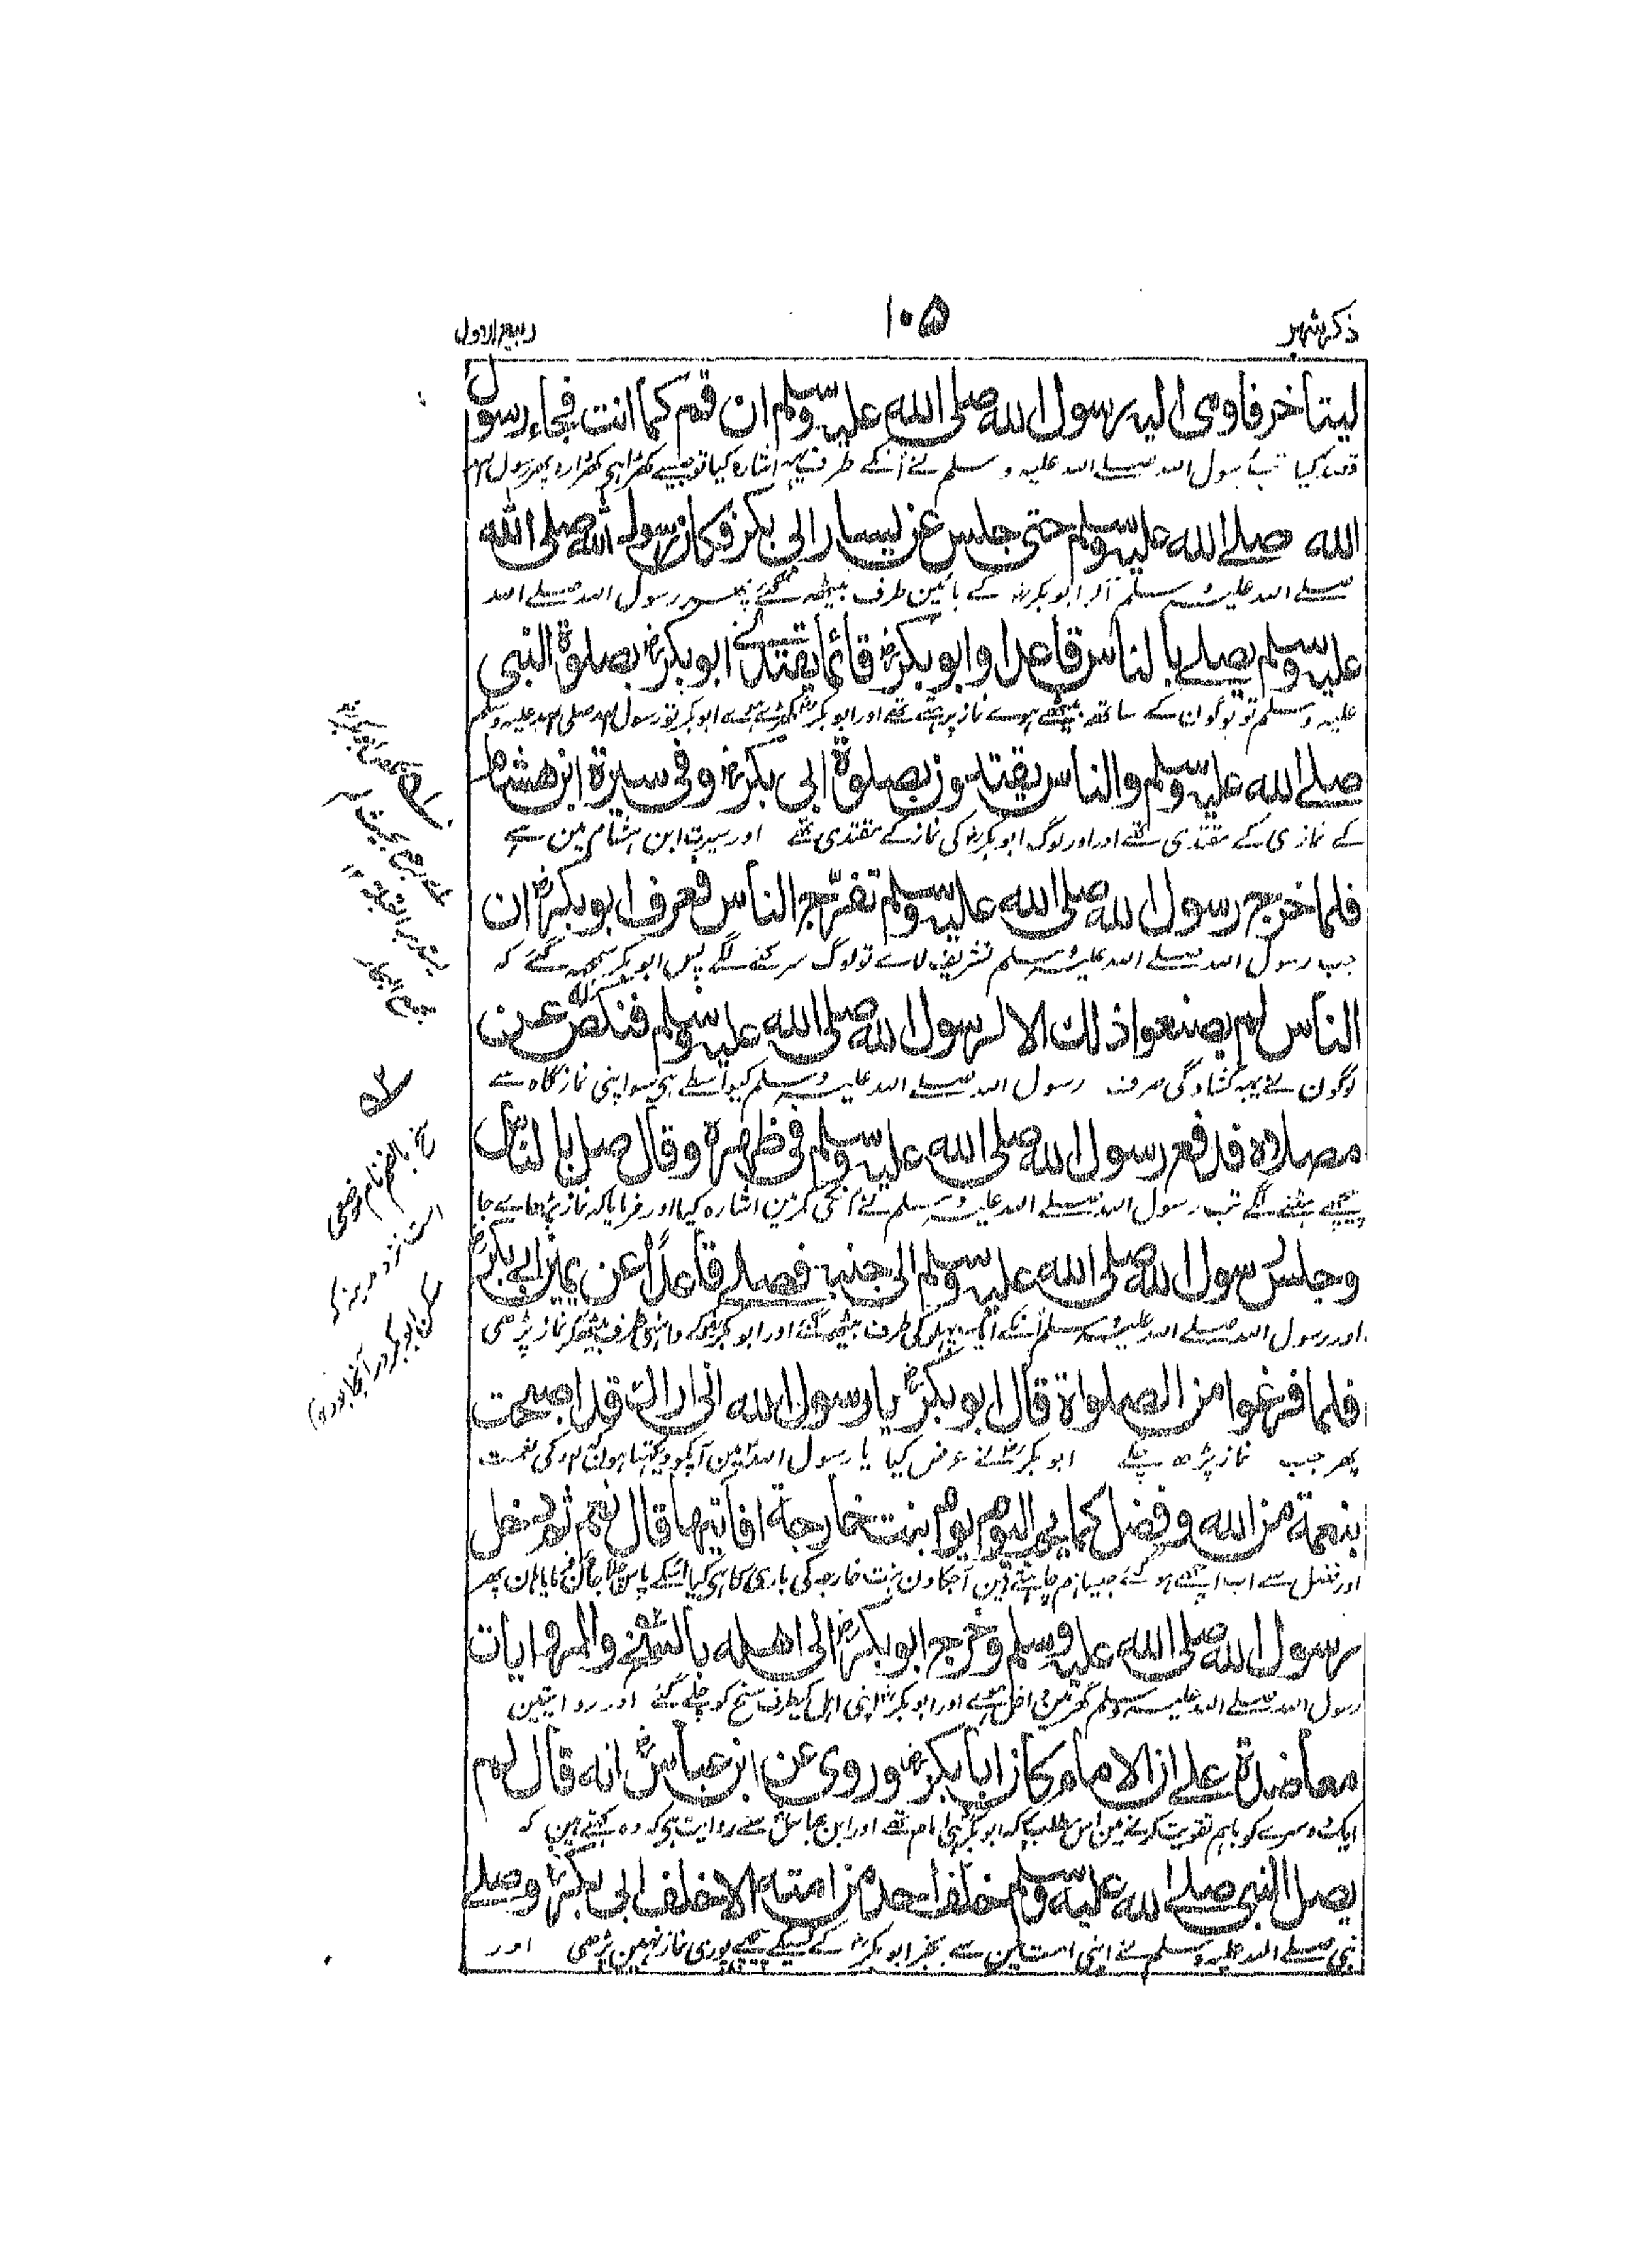 ذکر شہر
۱۰۵
ربیع الاول
لیتاخر فاومی الیہ رسول اللہ صلی اللہ علیہ وسلم ان قم کما انت فجاء رسول
قصد کیا تب رسول اللہ صلے اللہ علیہ و سلم نے انکے طرف یہہ اشارہ کیا تو جیسے کھڑا ہی کھڑا رہ پھر رسول
اللہ صلے اللہ علیہ وسلم حتی جلس عن یسار ابی بکرؓ فکان رسول اللہ صلی اللہ
صلے اللہ علیہ وسلم آکر ابو بکرؓ کے بائین طرف بیٹھہ گئے پھر رسول اللہ صلے اللہ
علیہ وسلم یصلے بالناس قاعدا وابو بکرؓ قائما یقتدی ابو بکرؓ بصلوۃ النبی
علیہ وسلم تو لوگوان کے ساتھہ بیٹھے ہوے نماز پڑہتے تھے اور ابو بکرؓ کھڑے تھے ابو بکر تو رسول اللہ صلی اللہ علیہ وسلم
صلے اللہ علیہ وسلم والناس یقتدون بصلوۃ ابی بکرؓ وفی سیرۃ ابن ھشام
کے نماز ی کے مقتدی تھے اور اور لوگ ابو بکرؓ کی نماز کے مقتدی تھے اور سیرت ابن ہشام مین ہے
فلما خرج رسول اللہ صلی اللہ علیہ وسلم تفرّج الناس فعرف ابو بکرؓ ان
جب رسول اللہ صلے اللہ علیہ وسلم تشریف لاے تو لوگ سرکنے لگے پس ابو بکر سمجھہ گئے کہ
الناس لم یصنعوا ذلك الا لرسول اللہ صلی اللہ علیہ وسلم فنکص عن
لوگون نے یہہ کشادگی صرف رسول اللہ صلے اللہ علیہ وسلم کیواسطے ہی سو اپنی نماز گاہ سے
مصلاہ فدفع رسول اللہ صلی اللہ علیہ وسلم فی ظھرہ وقال صل بالناس
پیچھے ہٹنے لگے تب رسول اللہ صلے اللہ علیہ وسلم نے انکی کمر مین اشارہ کیا اور فرمایا کہ نماز پڑھاے جا
وجلس رسول اللہ صلی اللہ علیہ وسلم الی جنبہ فصلے قاعدًا عن یمین ابی بکرؓ
اور رسول اللہ صلے اللہ علیہ وسلم انکے ایک پہلو کی طرف بیٹھہ گئے اور ابو بکرؓ کے داہنی طرف بیٹھکر نماز پڑھی
فلما فرغوا من الصلواۃ قال ابو بکرؓ یا رسول اللہ انی اراك قد اصبحت
پھر جب نماز پڑھ چکے ابو بکرؓ نے عرض کیا یا رسول اللہ مین آپکو دیکھتا ہون اللہ کی نعمت
بنعمۃ من اللہ وفضل کما یحب الیوم یوم بنت خارجۃ افاتیھا قال نعم ثم دخل
اور فضل سے اب اچھے ہو گئے جیسا ہم چاہتے ہین آجکا دن بنت خارجہ کی باری کا ہی کیا اسکے پاس چلا جاؤن فرمایا ہان پھر
رسول اللہ صلی اللہ علیہ وسلم وخرج ابو بکرؓ الی اھلہ بالسنح والروایات
رسول اللہ صلے اللہ علیہ وسلم گھر مین داخل ہوے اور ابو بکرؓ اپنی اہل کیطرف سنح کو چلے گئے اور روایتین
معاضدۃ علے ان الامام کان ابا بکرؓ وروی عن ابن عباسؓ انہ قال لم
ایک دوسرے کو باہم تقویت کرتے ہین اس مطلب کہ ابو بکرؓ ہی امام تھے اور ابن عباسؓ سے روایت ہی کہ وہ کہتے ہین کہ
یصل النبی صلے اللہ علیہ وسلم خلف احد من امتہ الا خلف ابی بکرؓ وصلے
نبی صلے اللہ علیہ وسلم نے اپنی امت مین سے بجز ابو بکرؓ کے کسیکے پیچھے پوری نماز نہین پڑھی اور
سنح بالضم نام موضعی
است نزد مدینہ کہ
مسکن ابو بکر در آنجا بود